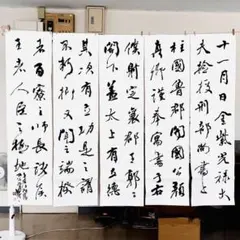 十一月日金紫光祿大
夫檢校刑部尚書上
柱國魯郡開國公顏
真卿謹奉書于右
僕射定襄郡王郭
閣下蓋太上有立德
其次有立功是之謂
不朽抑又聞之端揆
者百寮之師長諸侯
王者人臣之極地